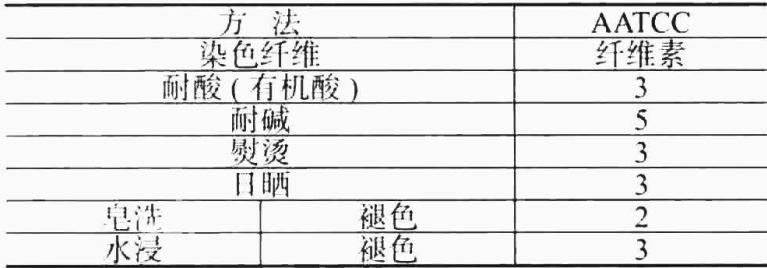 方 法 AATCC
染色纤维 纤维素
耐酸(有机酸) 3
耐碱 5
熨烫 3
日晒 3
皂洗 褪色 2
水浸 褪色 3